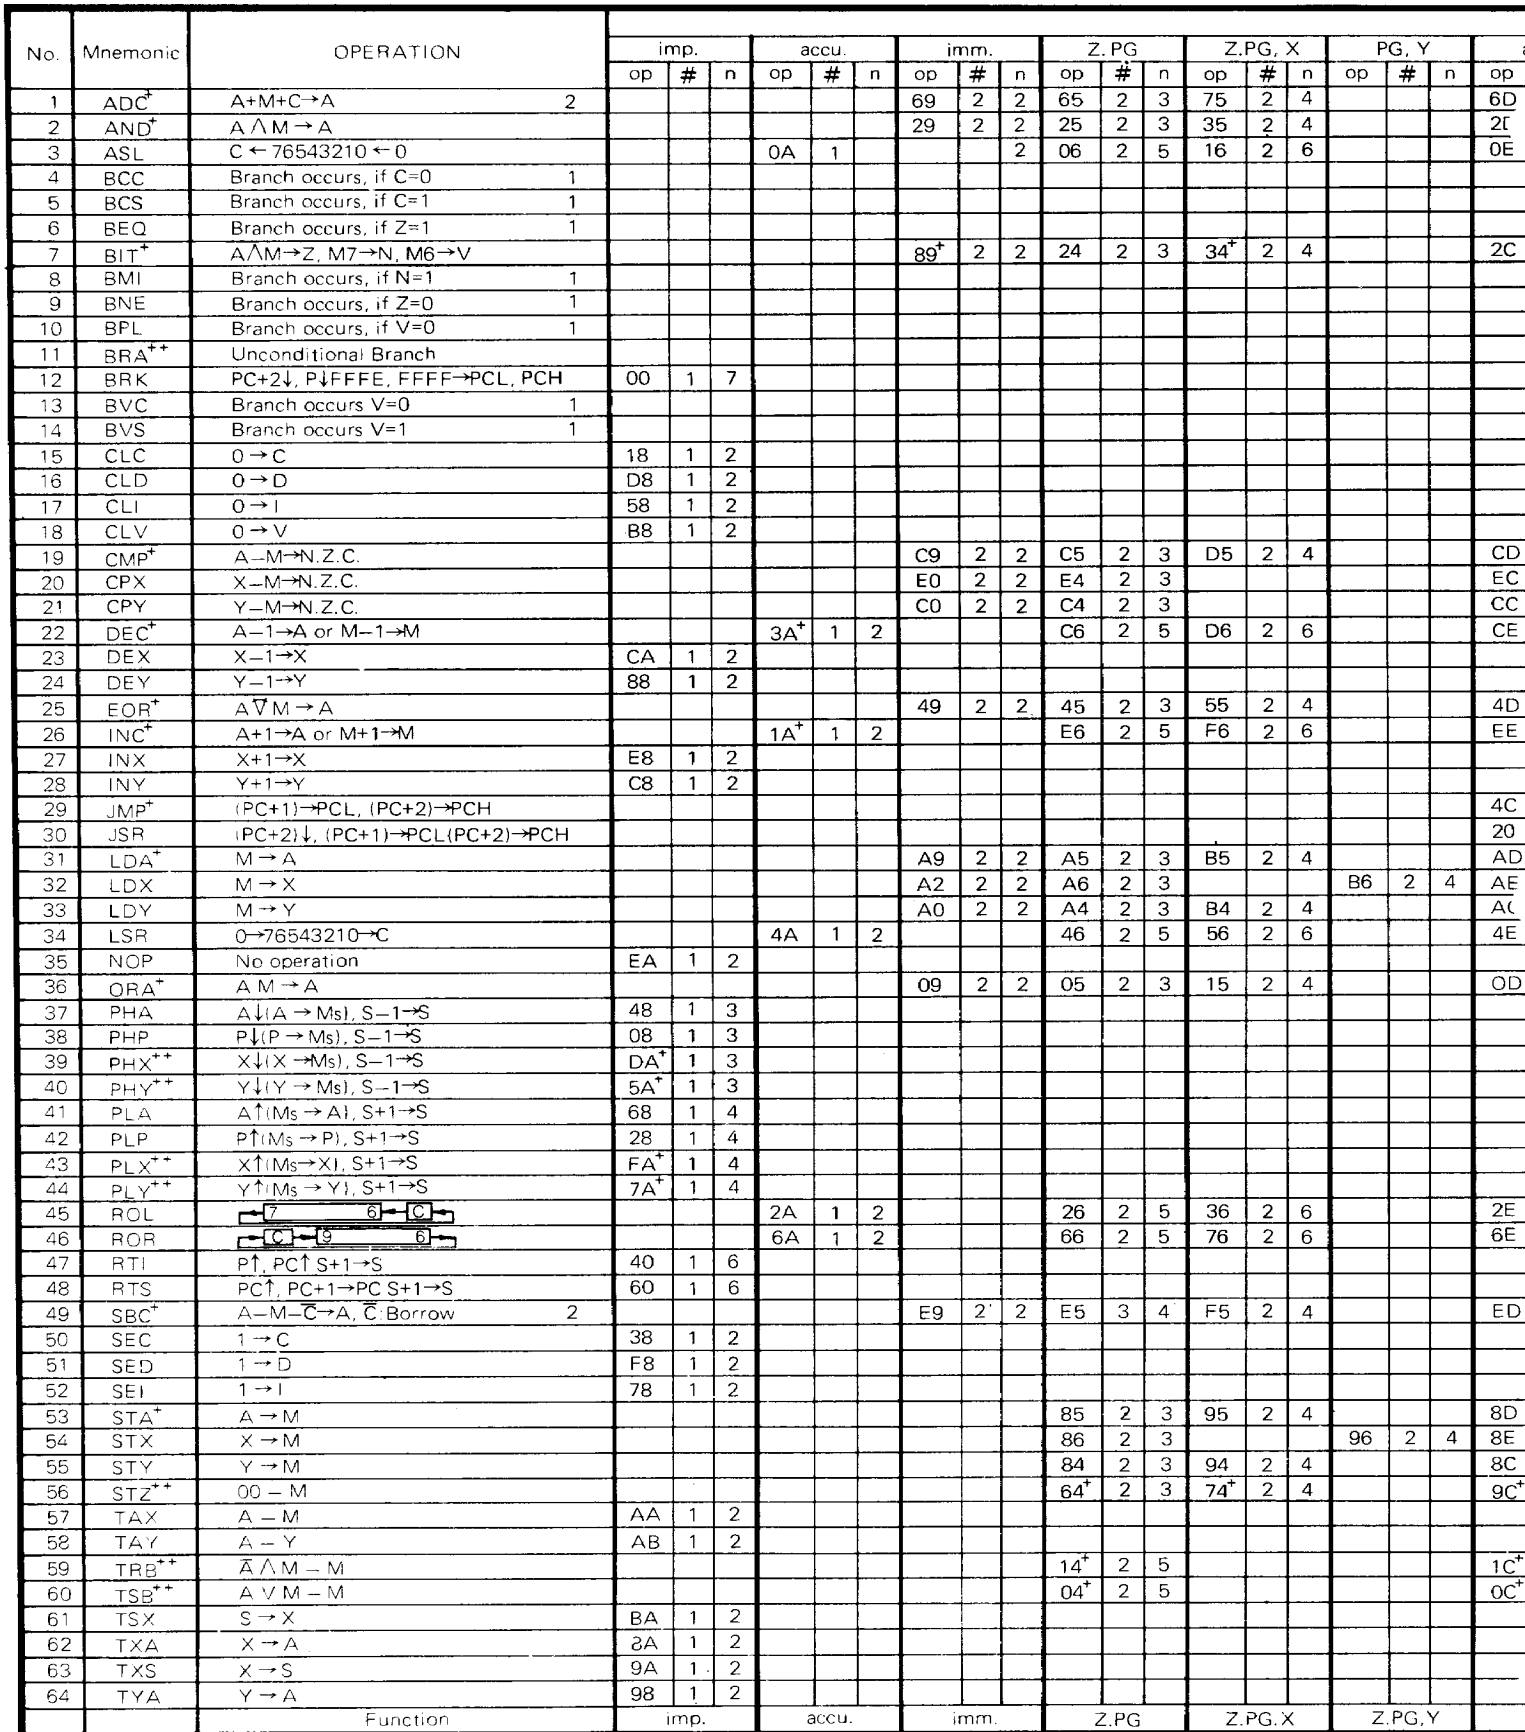 No. Mnemonic OPERATION imp. accu. imm. Z.PG Z.PG, X PG, Y
op # n op # n op # n op # n op # n op # n op
1 ADC+ A+M+C→A 2 69 2 2 65 2 3 75 2 4 6D
2 AND+ A∧M→A 29 2 2 25 2 3 35 2 4
3 ASL C←76543210←0 0A 1 2 06 2 5 16 2 6 0E
4 BCC Branch occurs, if C=0 1
5 BCS Branch occurs, if C=1 1
6 BEQ Branch occurs, if Z=1 1
7 BIT+ A∧M→Z, M7→N, M6→V 89+ 2 2 24 2 3 34+ 2 4 2C
8 BMI Branch occurs, if N=1 1
9 BNE Branch occurs, if Z=0 1
10 BPL Branch occurs, if V=0 1
11 BRA++ Unconditional Branch
12 BRK PC+2↓, P↓FFFE, FFFF→PCL, PCH 00 1 7
13 BVC Branch occurs V=0 1
14 BVS Branch occurs V=1 1
15 CLC 0→C 18 1 2
16 CLD 0→D D8 1 2
17 CLI 0→I 58 1 2
18 CLV 0→V B8 1 2
19 CMP+ A–M→N.Z.C. C9 2 2 C5 2 3 D5 2 4 CD
20 CPX X–M→N.Z.C. E0 2 2 E4 2 3 EC
21 CPY Y–M→N.Z.C. C0 2 2 C4 2 3 CC
22 DEC+ A–1→A or M–1→M 3A+ 1 2 C6 2 5 D6 2 6 CE
23 DEX X–1→X CA 1 2
24 DEY Y–1→Y 88 1 2
25 EOR+ A∇M→A 49 2 2 45 2 3 55 2 4 4D
26 INC+ A+1→A or M+1→M 1A+ 1 2 E6 2 5 F6 2 6 EE
27 INX X+1→X E8 1 2
28 INY Y+1→Y C8 1 2
29 JMP+ (PC+1)→PCL, (PC+2)→PCH 4C
30 JSR (PC+2)↓, (PC+1)→PCL(PC+2)→PCH 20
31 LDA+ M→A A9 2 2 A5 2 3 B5 2 4 AD
32 LDX M→X A2 2 2 A6 2 3 B6 2 4 AE
33 LDY M→Y A0 2 2 A4 2 3 B4 2 4
34 LSR 0→76543210→C 4A 1 2 46 2 5 56 2 6 4E
35 NOP No operation EA 1 2
36 ORA+ A M→A 09 2 2 05 2 3 15 2 4 0D
37 PHA A↓(A→Ms), S–1→S 48 1 3
38 PHP P↓(P→Ms), S–1→S 08 1 3
39 PHX++ X↓(X→Ms), S–1→S DA+ 1 3
40 PHY++ Y↓(Y→Ms), S–1→S 5A+ 1 3
41 PLA A↑(Ms→A), S+1→S 68 1 4
42 PLP P↑(Ms→P), S+1→S 28 1 4
43 PLX++ X↑(Ms→X), S+1→S FA+ 1 4
44 PLY++ Y↑(Ms→Y), S+1→S 7A+ 1 4
45 ROL 7 6 C 2A 1 2 26 2 5 36 2 6 2E
46 ROR C 9 6 6A 1 2 66 2 5 76 2 6 6E
47 RTI P↑, PC↑ S+1→S 40 1 6
48 RTS PC↑, PC+1→PC S+1→S 60 1 6
49 SBC+ A–M–C̅→A, C̅:Borrow 2 E9 2 2 E5 3 4 F5 2 4 ED
50 SEC 1→C 38 1 2
51 SED 1→D F8 1 2
52 SEI 1→I 78 1 2
53 STA+ A→M 85 2 3 95 2 4 8D
54 STX X→M 86 2 3 96 2 4 8E
55 STY Y→M 84 2 3 94 2 4 8C
56 STZ++ 00 – M 64+ 2 3 74+ 2 4 9C+
57 TAX A – M AA 1 2
58 TAY A – Y AB 1 2
59 TRB++ A̅∧M – M 14+ 2 5 1C+
60 TSB++ A∨M – M 04+ 2 5 0C+
61 TSX S→X BA 1 2
62 TXA X→A 8A 1 2
63 TXS X→S 9A 1 2
64 TYA Y→A 98 1 2
Function imp. accu. imm. Z.PG Z.PG.X Z.PG,Y